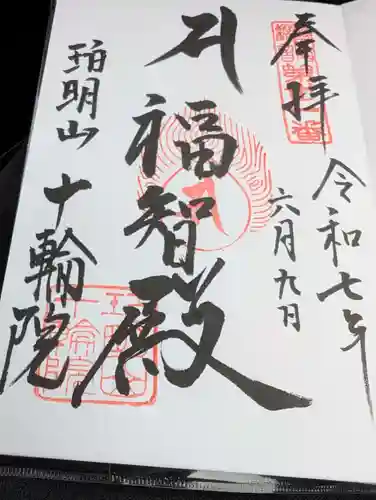 奉拝
令和七年
六月九日
福智殿
珀明山 十輪院